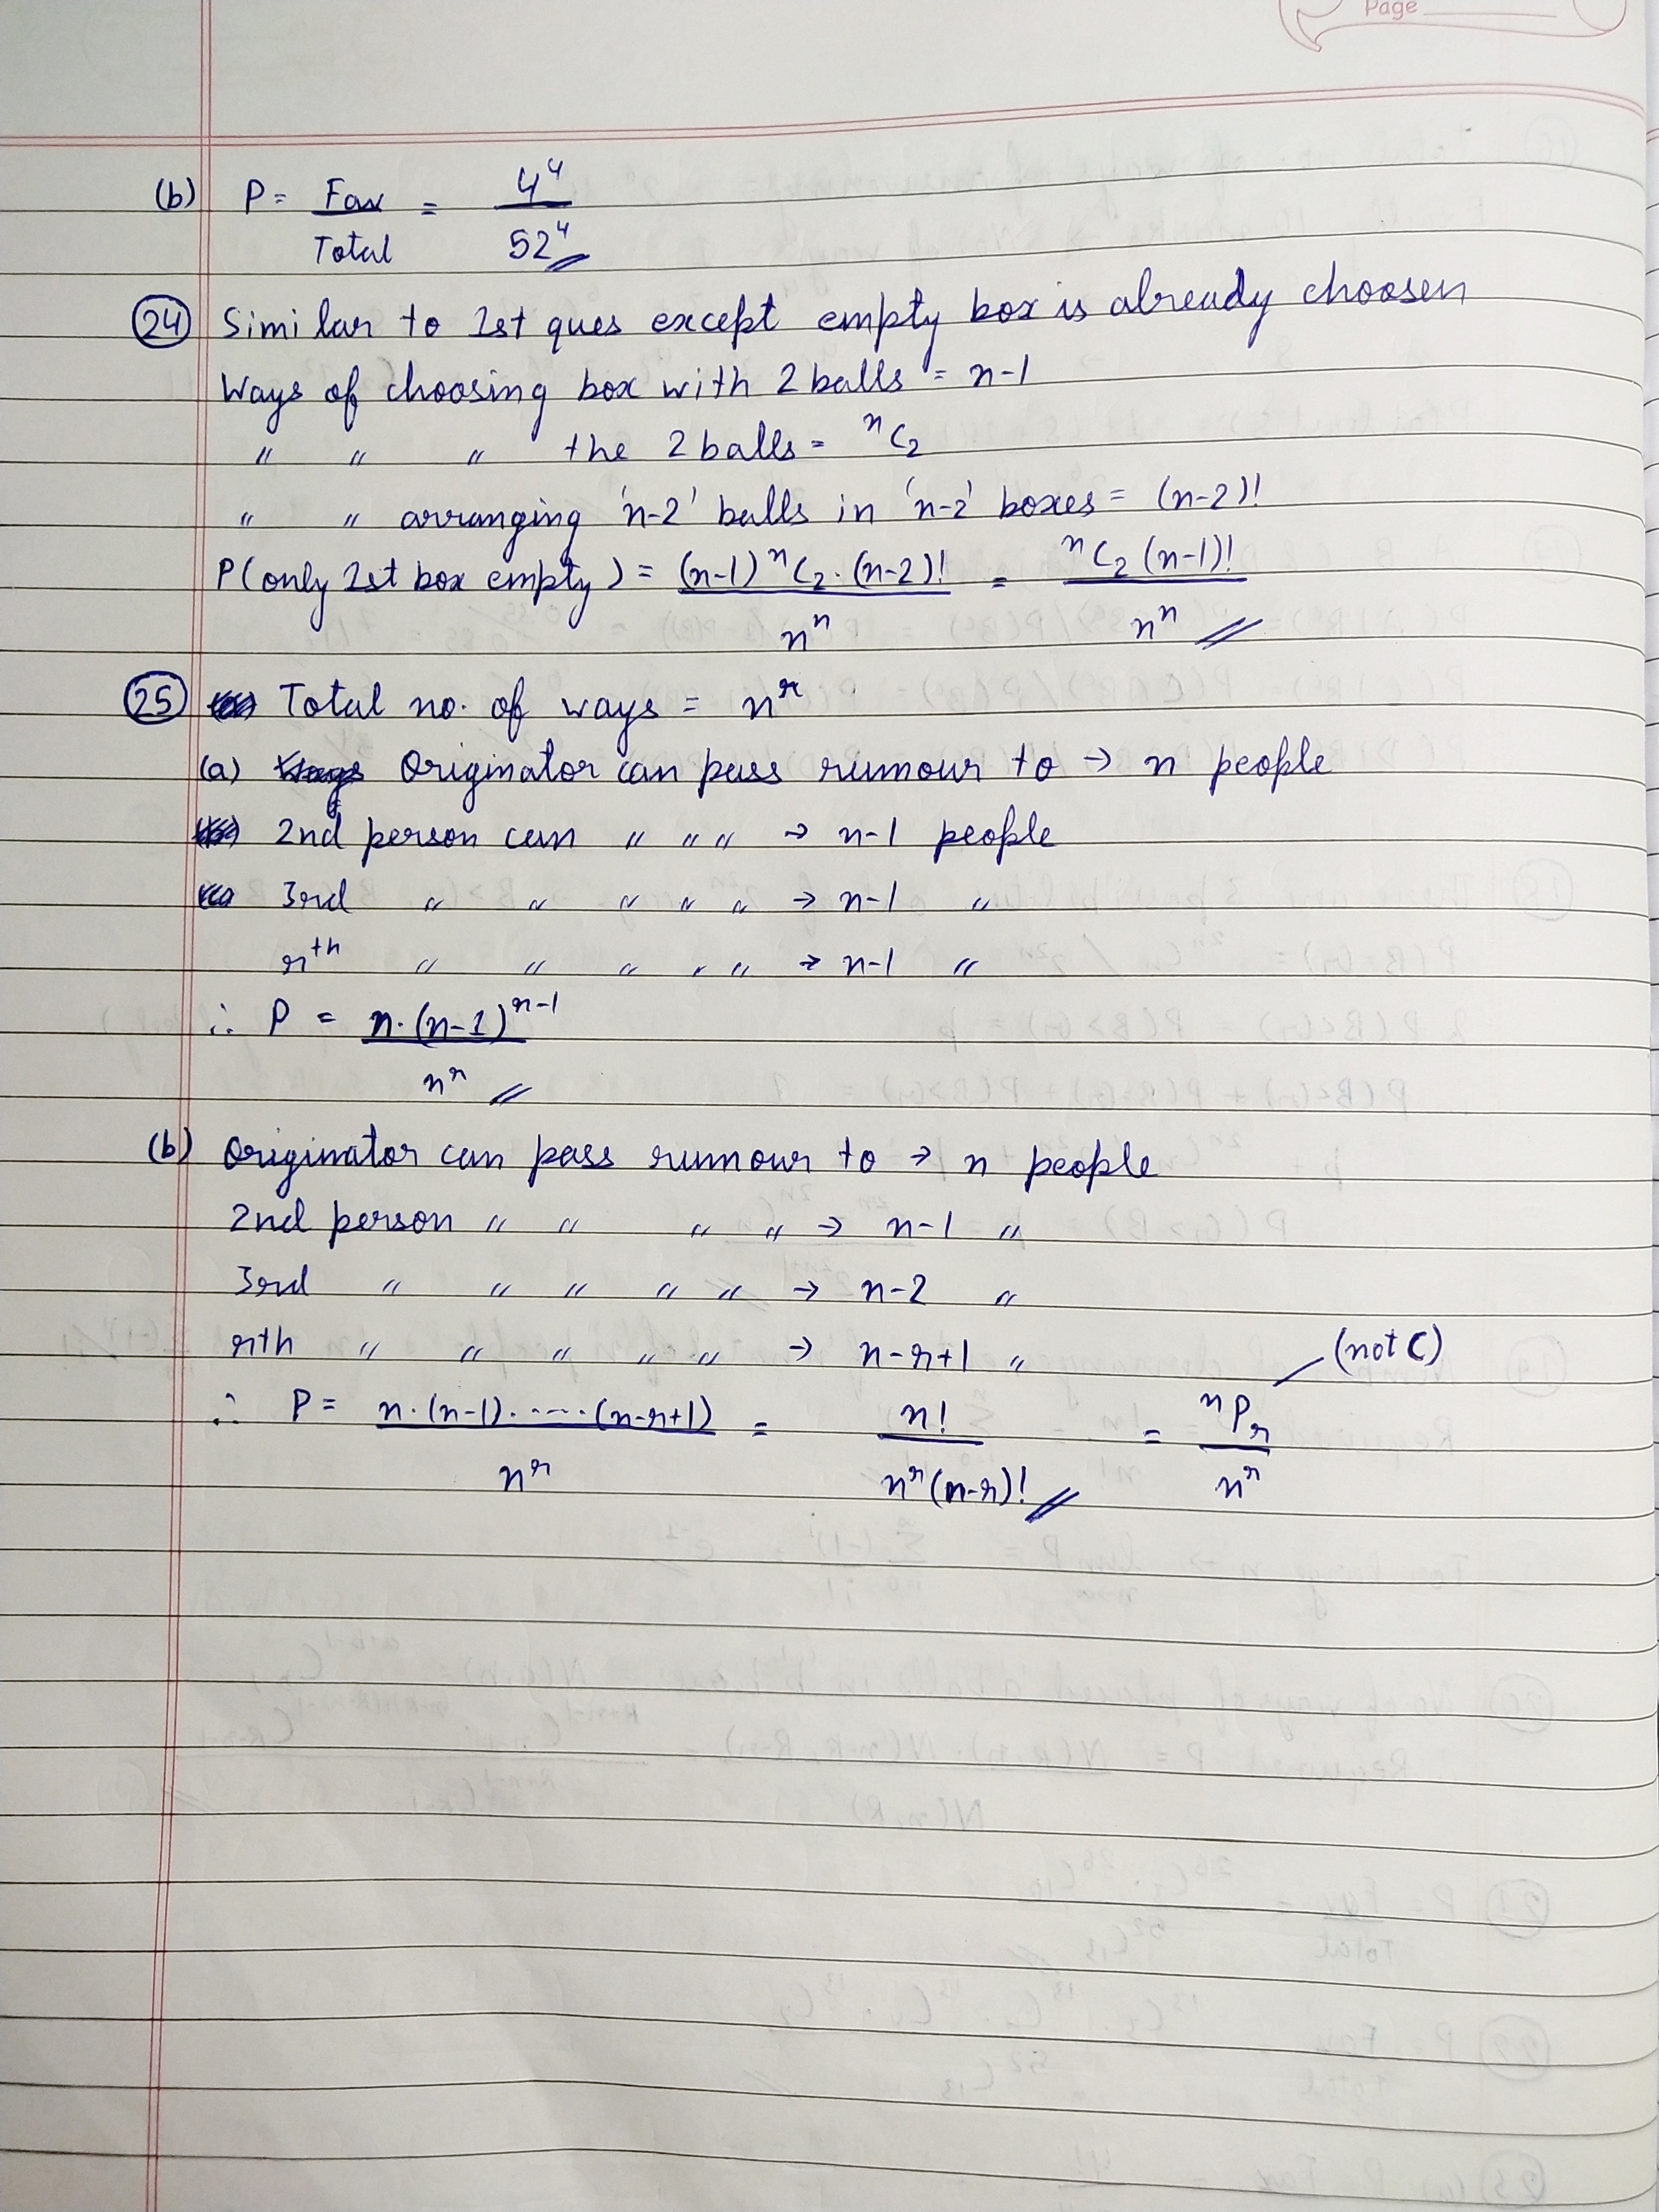 Page
(b) P = Fav / Total = 4⁴ / 52⁴
(24) Similar to 1st ques except empty box is already choosen
Ways of choosing box with 2 balls = n-1
" " " the 2 balls = ⁿC₂
" " arranging 'n-2' balls in 'n-2' boxes = (n-2)!
P(only 1st box empty) = (n-1) ⁿC₂ . (n-2)! / nⁿ = ⁿC₂ (n-1)! / nⁿ
(25) Total no. of ways = nʳ
(a) Originator can pass rumour to → n people
2nd person can " " " → n-1 people
3rd " " " " " → n-1 "
rᵗʰ " " " " " → n-1 "
∴ P = n.(n-1)ʳ⁻¹ / nʳ
(b) Originator can pass rumour to → n people
2nd person " " " " → n-1 "
3rd " " " " " → n-2 "
rth " " " " " → n-r+1 "
(not C)
∴ P = n.(n-1). ---- .(n-r+1) / nʳ = n! / nʳ(n-r)! = ⁿPᵣ / nʳ